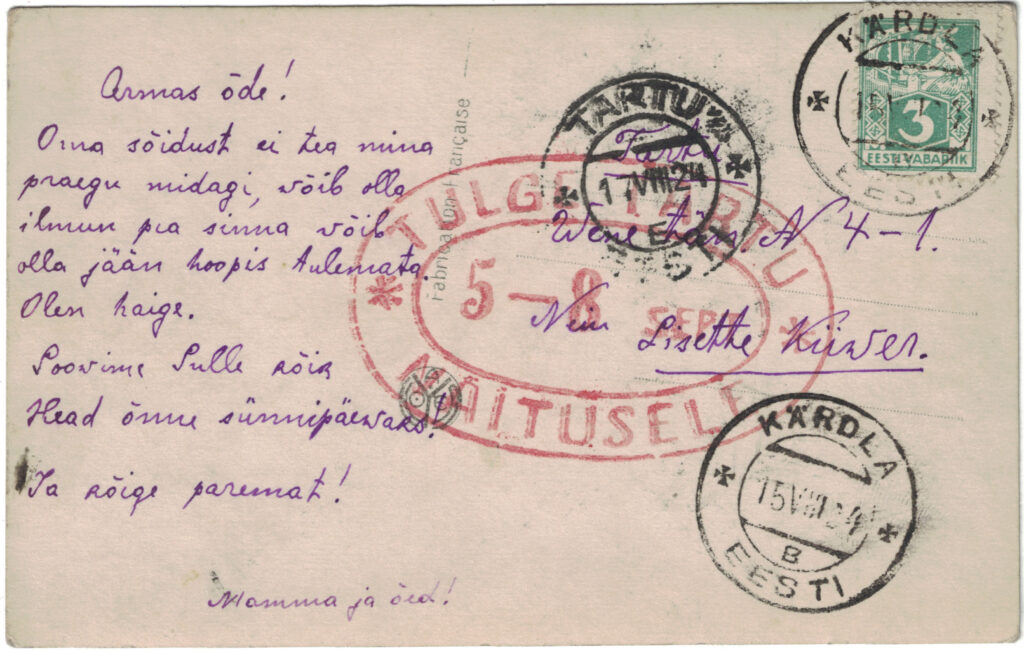 Armas õde!
Oma sõidust ei tea mina
praegu midagi, võib olla
ilmun pea sinna võib
olla jään hoopis tulemata.
Olen haige.
Soovime Sulle kõik
Head õnne sünnipäewaks.
Ja kõige paremat!
Mamma ja õed!
Fabrication Française
Tartu
Wene tän N 4-1.
Nein
Lisette Kiiwer.
TARTU
17 VIII 24
EESTI
TULGE TARTU
5-8 SEPT
NÄITUSELE
KÄRDLA
EESTI
3
EESTI VABARIIK
KÄRDLA
15 VIII 24
B
EESTI